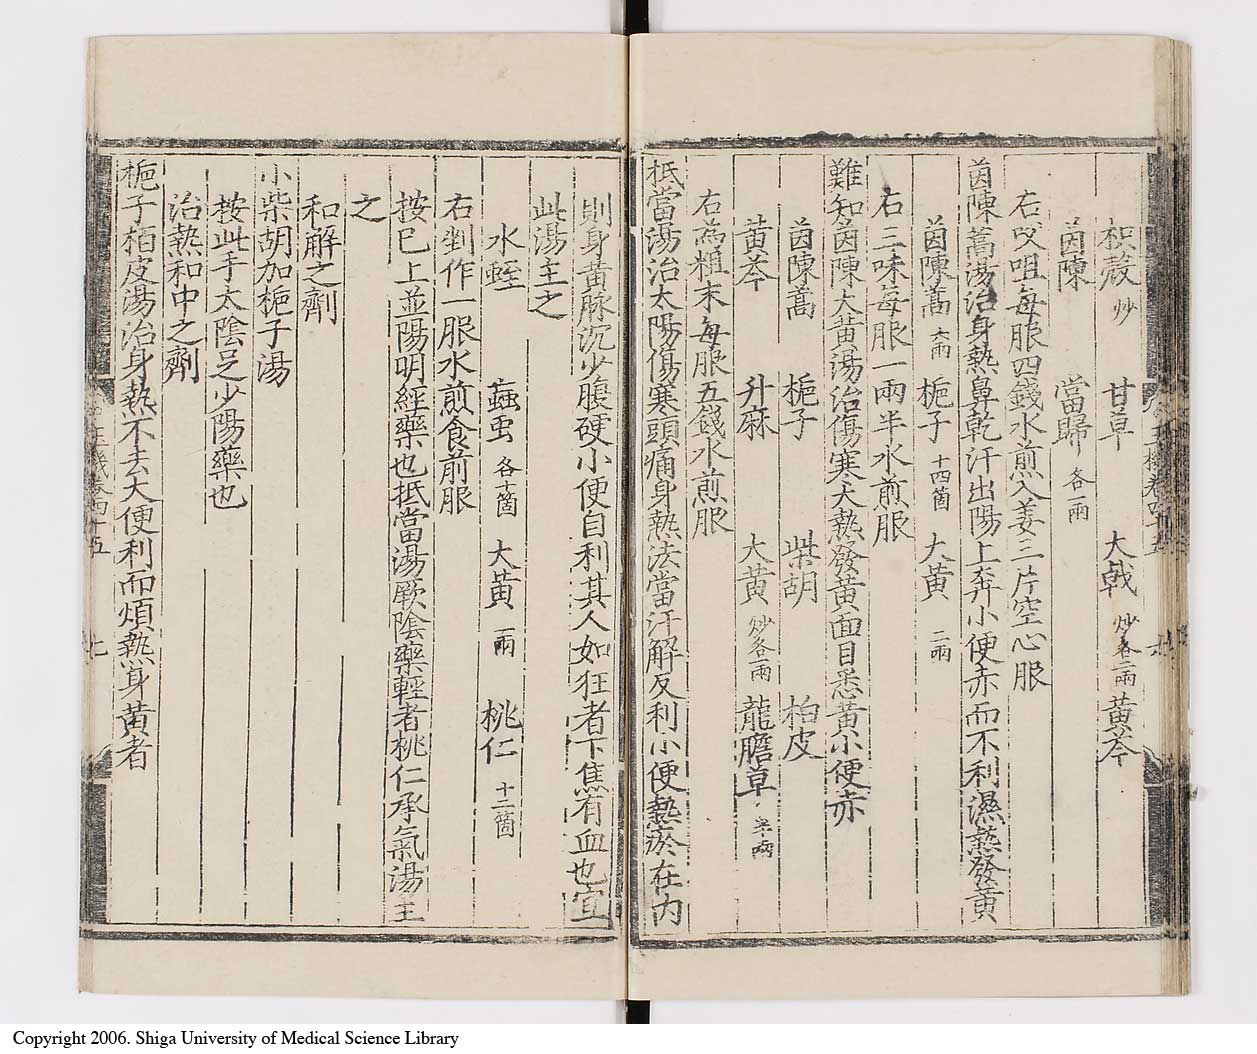 枳殼 炒 甘草 大戟 炒各二兩 黄芩
茵陳 當歸 各一兩
右㕮咀每服四錢水煎入姜三片空心服
茵陳蒿湯治身熱鼻乾汗出陽上奔小便赤而不利濕熱發黄
茵陳蒿 六兩 梔子 十四箇 大黄 二兩
右三味每服一兩半水煎服
難知茵陳大黄湯治傷寒大熱發黄面目悉黄小便赤
茵陳蒿 梔子 柴胡 柏皮
黄芩 升麻 大黄 炒各一兩 龍膽草 半兩
右為粗末每服五錢水煎服
抵當湯治太陽傷寒頭痛身熱法當汗解反利小便熱瘀在内
則身黄脉沉少腹硬小便自利其人如狂者下焦有血也宜
此湯主之
水蛭 蝱虫 各十箇 大黄 一兩 桃仁 十二箇
右剉作一服水煎食前服
按已上並陽明經藥也抵當湯厥陰藥輕者桃仁承氣湯主
之
和解之劑
小柴胡加梔子湯
按此手太陰足少陽藥也
治熱和中之劑
梔子栢皮湯治身熱不去大便利而煩熱身黄者
卷四十五
七
Copyright 2006. Shiga University of Medical Science Library